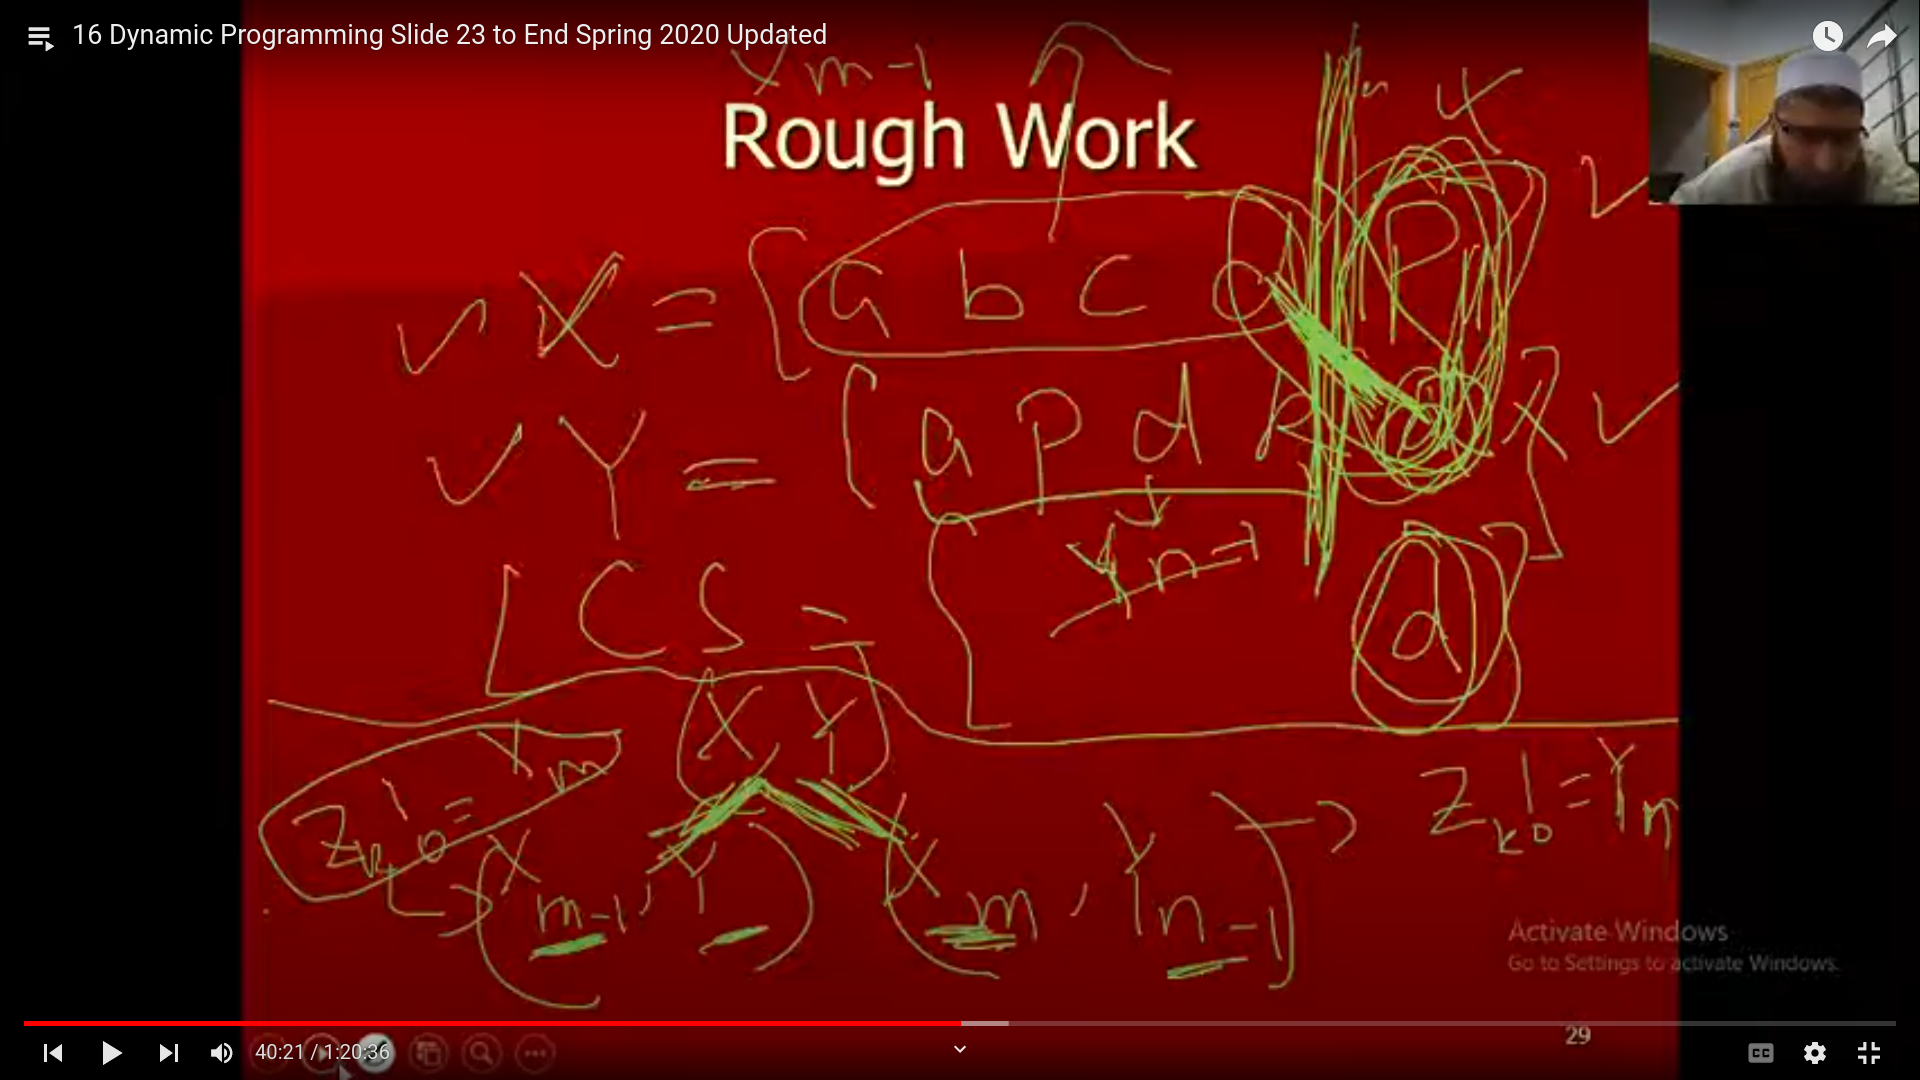 16 Dynamic Programming Slide 23 to End Spring 2020 Updated
X m-1
Rough Work
X = [ a b c d P
Y = [ a p d d ]
Y n-1
LCS =
d
X Y
Z k != X m
X m-1, Y
X m, Y n-1
Z k != Y n
Activate Windows
Go to Settings to activate Windows.
29
40:21 / 1:20:36
CC